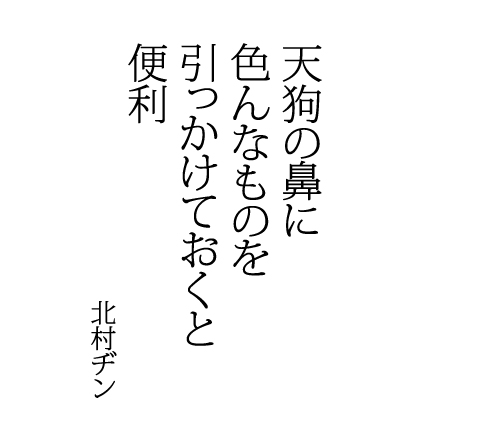 天狗の鼻に
色んなものを
引っかけておくと
便利
北村ヂン